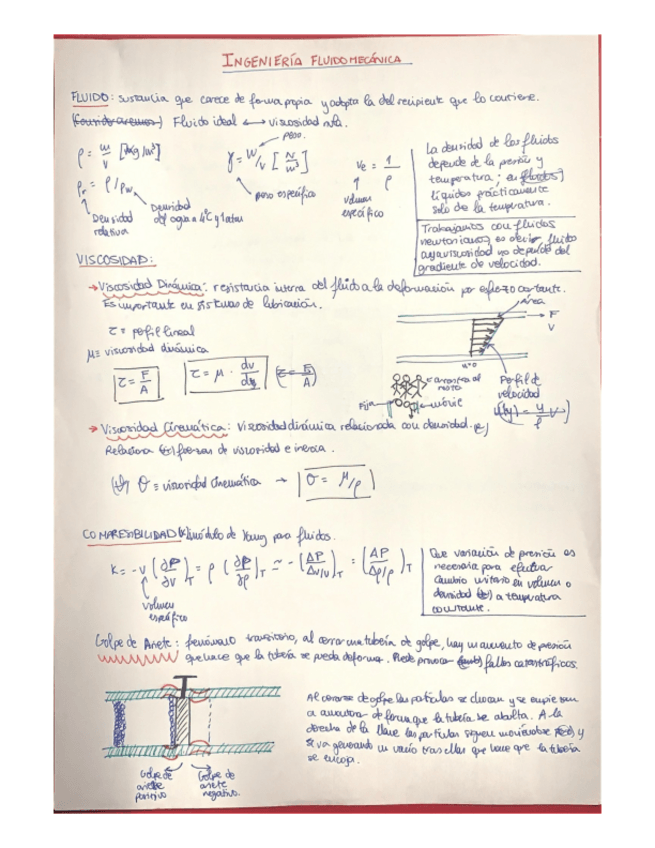 INGENIERÍA FLUIDOMECÁNICA
FLUIDO: sustancia que carece de forma propia y adopta la del recipiente que lo contiene.
Fluido ideal ⟷ viscosidad nula.
ρ = m/v [kg/m³]
γ = W/V [N/m³]
peso.
peso específico
ve = 1/ρ
volumen específico
ρr = ρ/ρw
Densidad relativa
Densidad del agua a 4ºC y 1 atm
La densidad de los fluidos
depende de la presión y
temperatura; en
líquidos prácticamente
solo de la temperatura.
Trabajamos con fluidos
newtonianos, es decir fluido
cuya viscosidad no depende del
gradiente de velocidad.
VISCOSIDAD:
→ Viscosidad Dinámica: resistencia interna del fluido a la deformación por esfuerzo cortante.
Es importante en sistemas de lubricación.
τ = perfil lineal
μ = viscosidad dinámica
τ = F/A
τ = μ · dv/dy
Área
F
V
u=0
arrastra al resto
Fija
móvil
Perfil de
velocidad
→ Viscosidad Cinemática: Viscosidad dinámica relacionada con densidad.
Relaciona fuerzas de viscosidad e inercia.
= viscosidad cinemática → = μ/ρ
COMPRESIBILIDAD módulo de Young para fluidos.
K = -v (∂P/∂v)T = ρ (∂P/∂ρ)T ≃ -(ΔP/Δv/v)T = (ΔP/Δρ/ρ)T
volumen
específico
Que variación de presión es
necesaria para efectuar
cambio unitario en volumen o
densidad a temperatura
constante.
Golpe de Ariete: fenómeno transitorio, al cerrar una tubería de golpe, hay un aumento de presión
que hace que la tubería se pueda deformar. Puede provocar fallos catastróficos.
Golpe de
ariete
positivo
Golpe de
ariete
negativo.
Al cerrarse de golpe las partículas se chocan y se empiezan
a amontonar de forma que la tubería se abulta. A la
derecha de la llave las partículas siguen moviéndose y
se va generando un vacío tras ellas que hace que la tubería
se encoja.